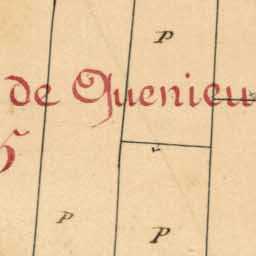 P
de Quenieu
5
P
P